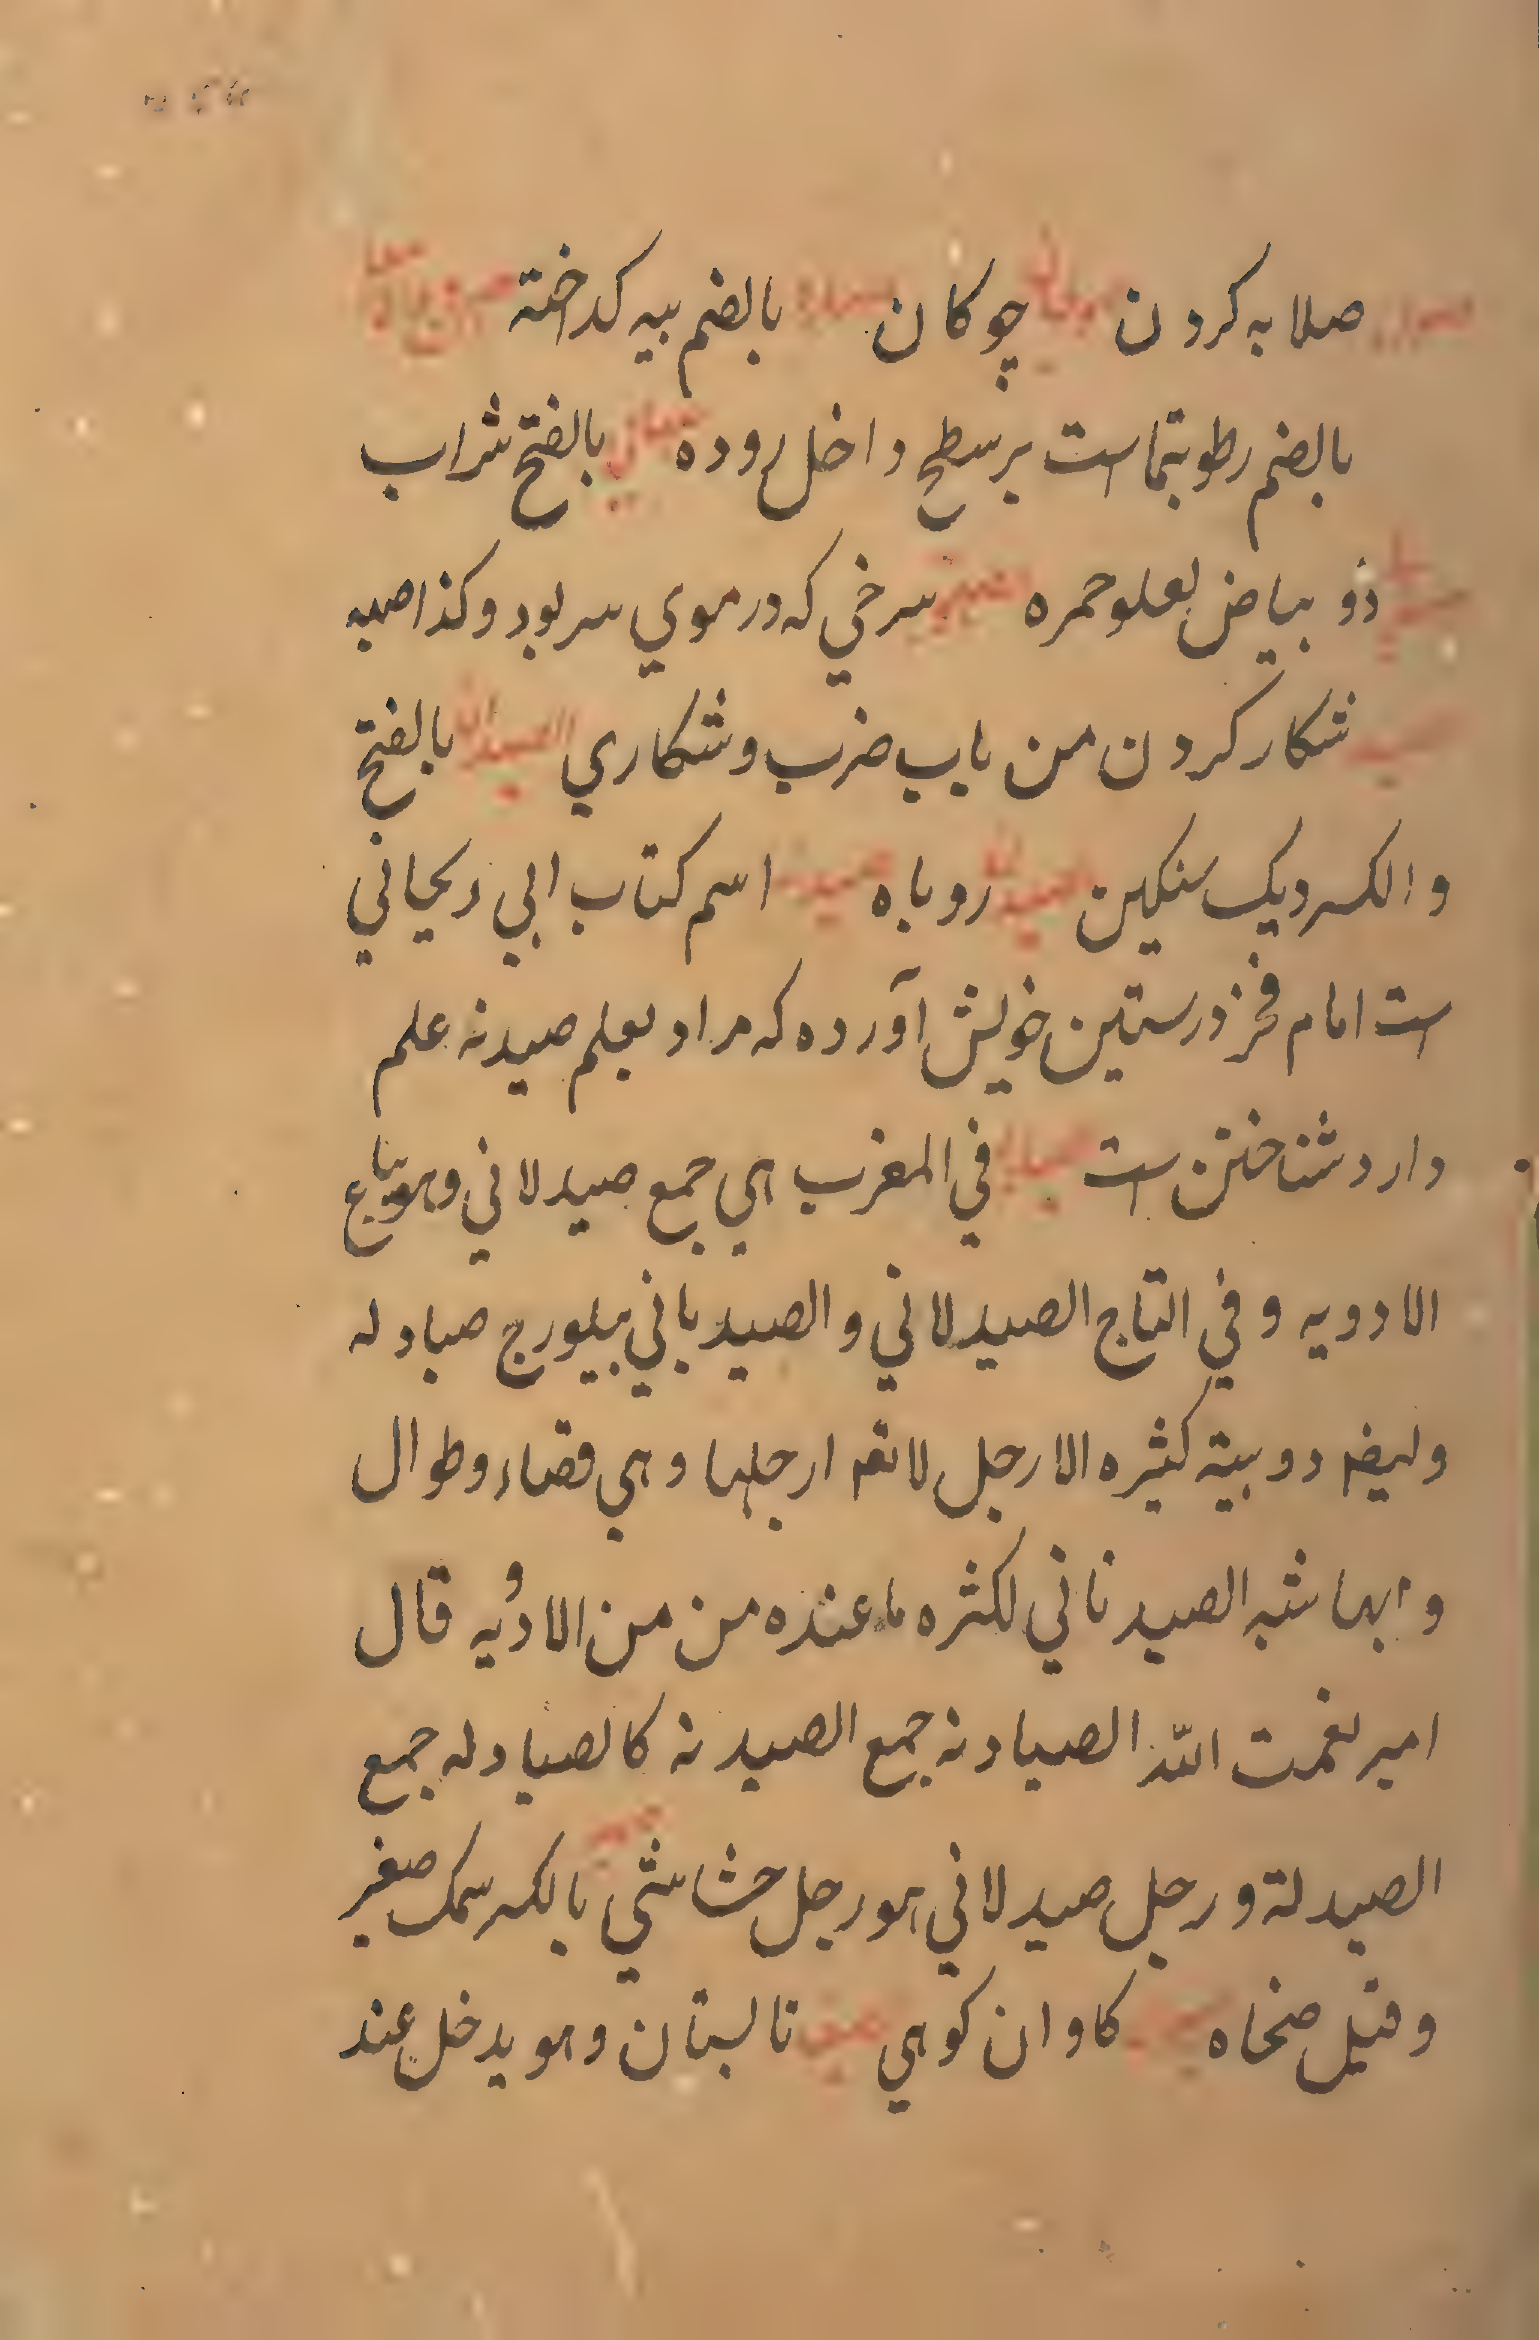 صلابه کردن چوکان بالضم بیه کداخته
بالضم رطوبتهاست برسطح داخل روده بالفتح شراب
ذو بیاض یعلو حمره سرخي که در موي سر بود وکذا صهبه
شکار کردن من باب ضرب وشکاري الصیدان بالفتح
والکسر دیک سنکین روباه اسم کتاب ابي ریحاني
است امام فخر درستین خویش آورده که مراد بعلم صیدنه علم
دارد شناختن است في المغرب هي جمع صیدلاني وهو بیاع
الادویه وفي التاج الصیدلاني والصیدناني بیلورج صیادله
دویبیة کثیره الارجل لا تعد ارجلها وهي قصار وطوال
وابها شبه الصیدناني لکثره ما عنده من من الادویه قال
امیر نعمت الله الصیادنه جمع الصیدنه کالصیادله جمع
الصیدلة ورجل صیدلاني هو رجل حشاشي بالکسر سمک صغیر
وقیل صحناه کاوان کوهي تابستان وهو یدخل عند